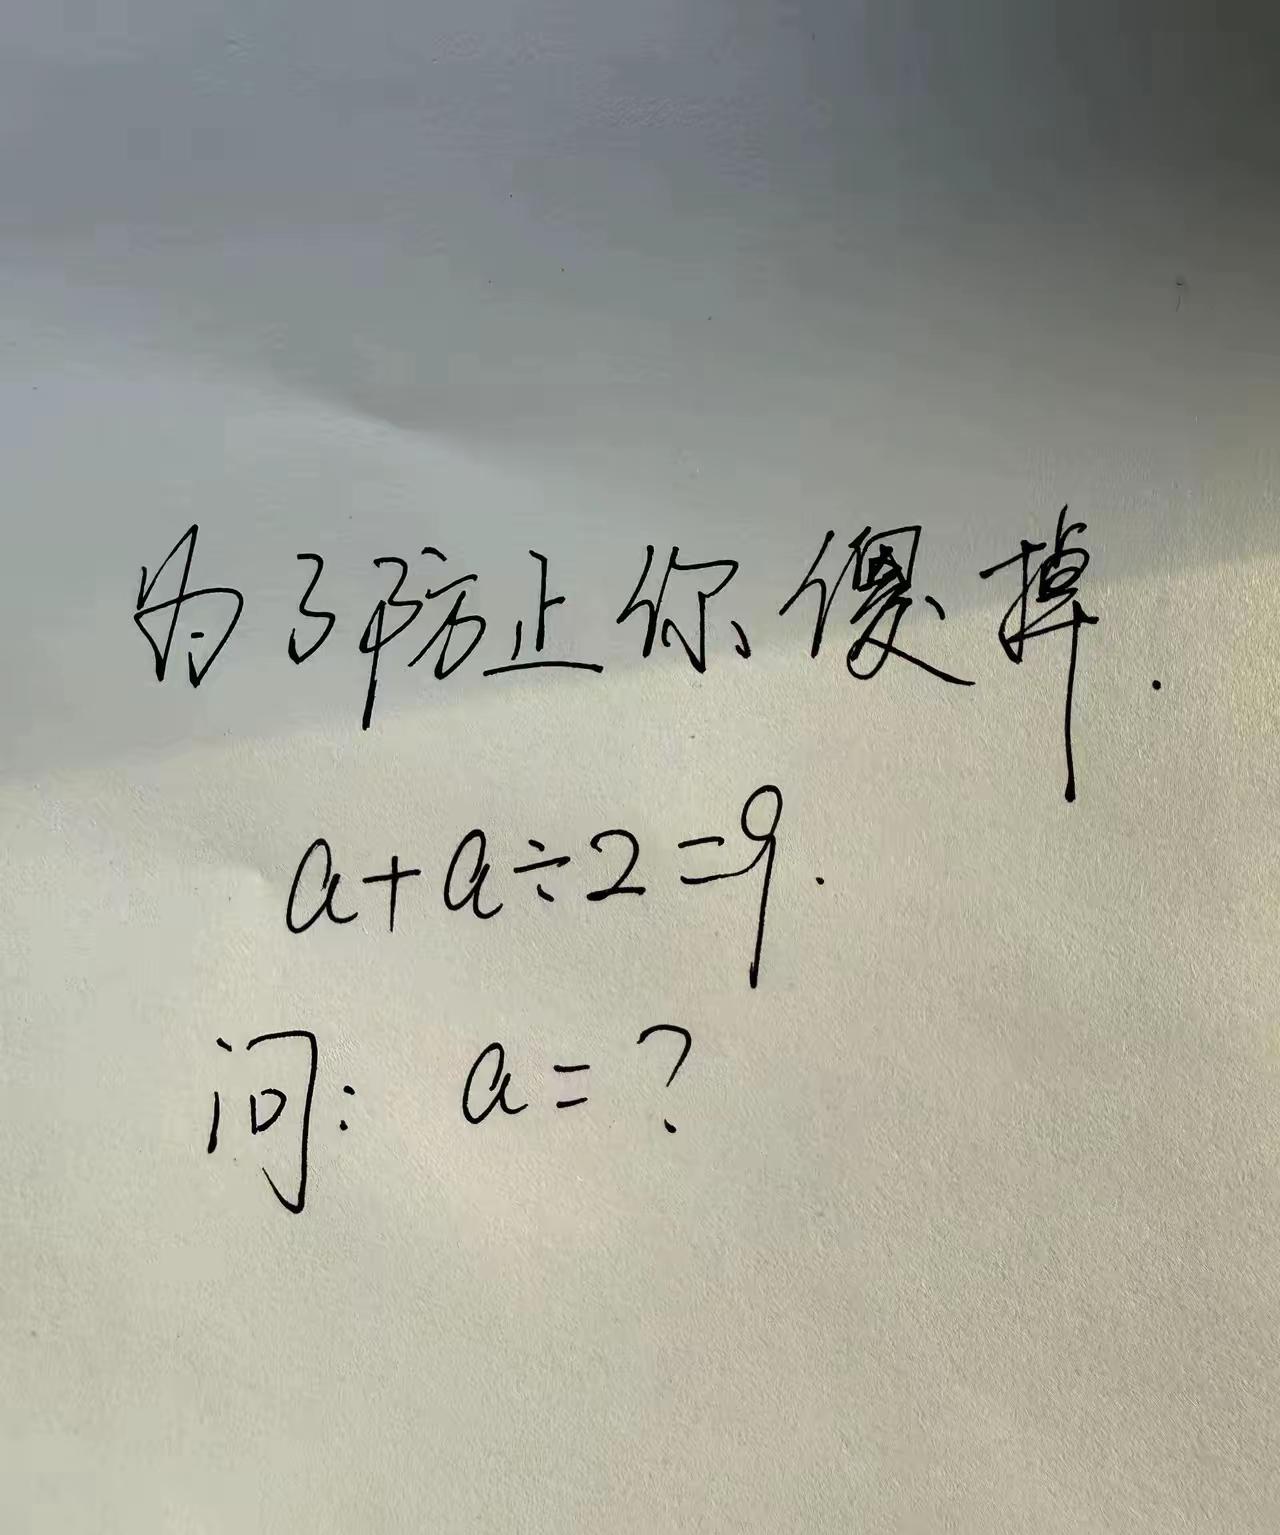 为了防止你傻掉.
a+a÷2=9.
问: a=?